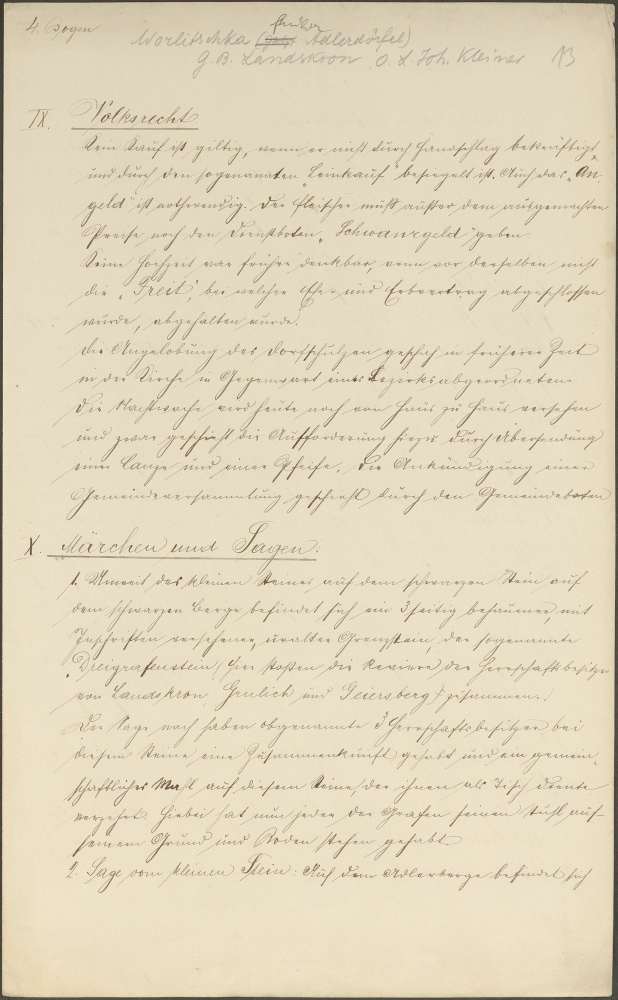 4. Bogen
früher
Worlitschka ( Adlerdörfel)
G. B. Landskron O. L. Joh. Kleiner 13
IX. Volksrecht
Kein Kauf ist giltig, wenn er nicht durch Handschlag bekräftigt
und durch den sogenannten „Leinkauf“ besiegelt ist. Auch das „An-
geld“ ist nothwendig. Der Fleischer muß außer dem ausgemachten
Preise noch den Dienstboten „Schwanzgeld“ geben.
Keine Hochzeit war früher denkbar, wenn vor derselben nicht
die „Freit“, bei welcher Ehe- und Erbvertrag abgeschlossen
wurde, abgehalten wurde.
Die Angelobung des Dorfschulzen geschah in früherer Zeit
in der Kirche in Gegenwart eines Bezirksabgeordneten.
Die Nachtwache wird heute noch von Haus zu Haus versehen
und zwar geschieht die Aufforderung hiezu durch Übersendung
einer Lanze und einer Pfeife. Die Ankündigung einer
Gemeindeversammlung geschieht durch den Gemeindeboten
X. Märchen und Sagen:
1. Unweit des kleinen Steines auf dem schwarzen Stein auf
dem schwarzen Berge befindet sich ein 3seitig behauener, mit
Inschriften versehener, uralter Grenzstein, der sogenannte
„Dreigrafenstein“ (hier stoßen die Reviere der Herrschaftsbesitzer
von Landskron, Grulich und Geiersberg) zusammen.)
Der Sage nach haben obgenannte 3 Herrschaftsbesitzer bei
diesem Steine eine Zusammenkunft gehabt und ein gemein-
schaftliches Mahl auf diesem Steine, der ihnen als Tisch diente
verzehrt. Hiebei hat nun jeder der Grafen seinen Stuhl auf
seinem Grund und Boden stehen gehabt.
2. Sage vom kleinen Stein: Auf dem Adlerberge befindet sich